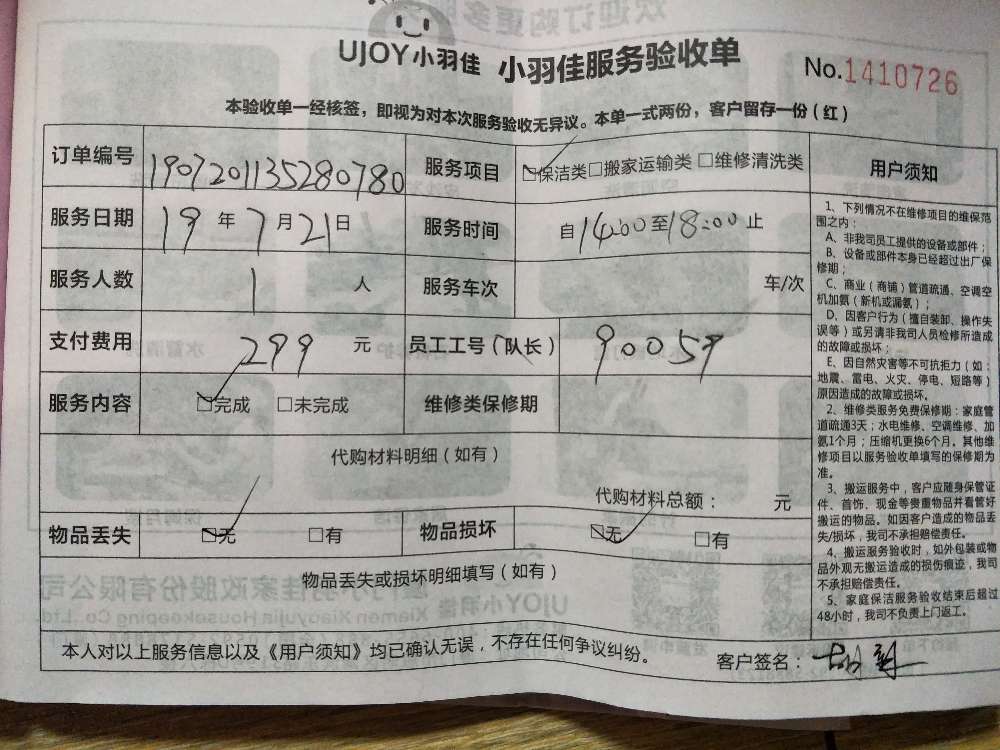 UJOY小羽佳 小羽佳服务验收单
No.1410726
本验收单一经核签，即视为对本次服务验收无异议。本单一式两份，客户留存一份（红）
订单编号 1907201135280780 服务项目 ☑保洁类□搬家运输类□维修清洗类
服务日期 19年7月21日 服务时间 自14:00至18:00止
服务人数 1人 服务车次 车/次
支付费用 299元 员工工号（队长） 90059
服务内容 ☑完成 □未完成 维修类保修期
代购材料明细（如有）
代购材料总额： 元
物品丢失 ☑无 □有 物品损坏 ☑无 □有
物品丢失或损坏明细填写（如有）
用户须知
1、下列情况不在维修项目的维保范
围之内：
A、非我司员工提供的设备或部件；
B、设备或部件本身已经超过出厂保
修期；
C、商业（商铺）管道疏通、空调空
机加氨（新机或漏氨）；
D、因客户行为（擅自装卸、操作失
误等）或另请非我司人员检修所造成
的故障或损坏；
E、因自然灾害等不可抗拒力（如：
地震、雷电、火灾、停电、短路等）
原因造成的故障或损坏。
2、维修类服务免费保修期：家庭管
道疏通3天；水电维修、空调维修、加
氨1个月；压缩机更换6个月。其他维
修项目以服务验收单填写的保修期为
准。
3、搬运服务中，客户应随身保管证
件、首饰、现金等贵重物品并看管好
搬运的物品。如因客户造成的物品丢
失/损坏，我司不承担赔偿责任。
4、搬运服务验收时，如外包装或物
品外观无搬运造成的损伤痕迹，我司
不承担赔偿责任。
5、家庭保洁服务验收结束后超过
48小时，我司不负责上门返工。
本人对以上服务信息以及《用户须知》均已确认无误，不存在任何争议纠纷。 客户签名：